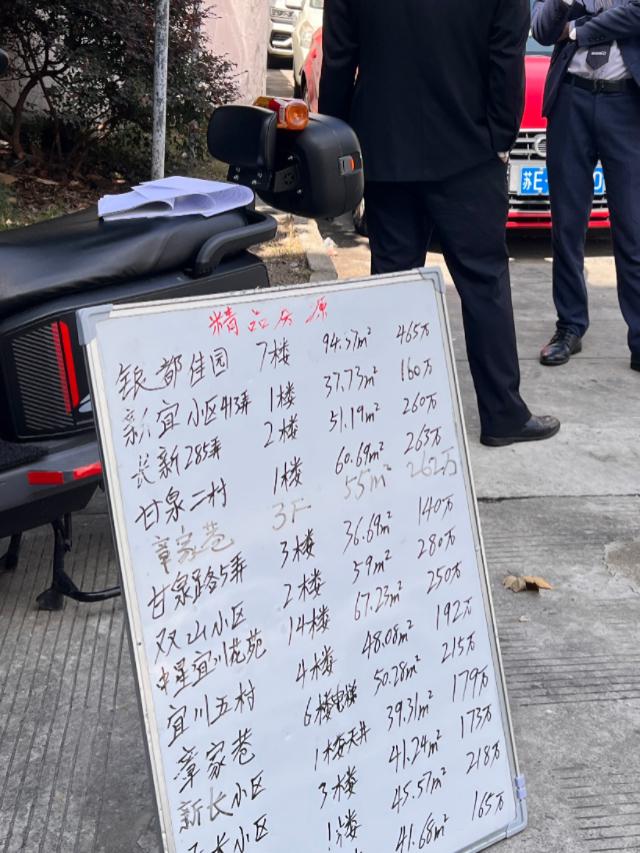 苏E
精品房源
银都佳园 7楼 94.37m² 465万
新宜小区413弄 1楼 37.73m² 160万
长新285弄 2楼 51.19m² 260万
甘泉二村 1楼 60.69m² 263万
章家巷 3F 55m² 262万
甘泉路5弄 3楼 36.69m² 140万
双山小区 2楼 59m² 280万
中星宜川苑 14楼 67.23m² 250万
宜川五村 4楼 48.08m² 192万
章家巷 6楼电梯 50.28m² 215万
新长小区 1楼天井 39.31m² 179万
长小区 3楼 41.24m² 173万
1楼 45.57m² 218万
41.68m² 165万